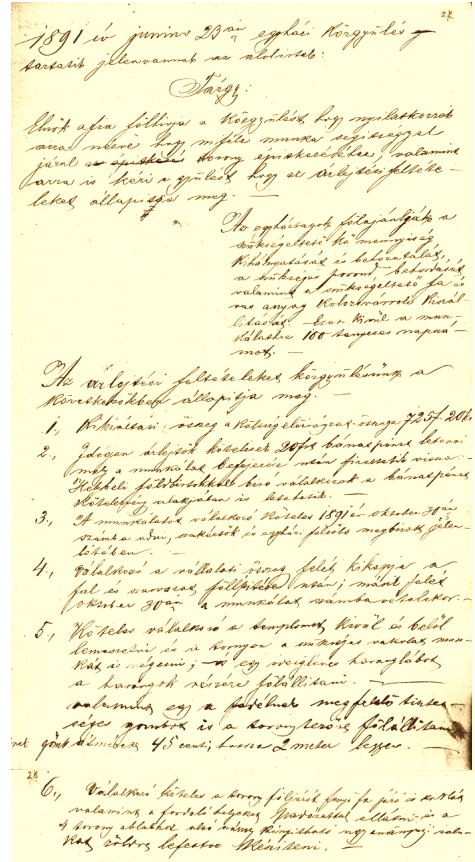 27
1891 év junius 23án egyházi Közgyülés
tartatik jelen vannak az alolirtak:
Tárgy:
Elnök afia föllivja a Közgyülést, hogy nyilatkozzék
arra nézve hogy miféle munka segitséggel
járul a torony épitkezéséhez, valamint
arra is kéri a gyülést, hogy az árlejtési feltéte-
leket állapitsa meg. —
Az egyháztagok fölajánlják a
szükségeltető kő mennyiség
kihányatását és behozatalát,
a szükséges porond behordását,
valamint a szükségeltető fa és
vas anyag Kolozsvárróli kiszál-
litását. Ezen kivül a mun-
kálatra 100 tenyeres napszá-
mot. —
Az árlejtési feltételeket közgyülésünk a
következőkben állapitja meg. —
1., Kikiáltási összeg a költségelőirányzat összege 725f. 20kr
2., Idegen árlejtők kötelesek 20frt bánatpénzt letenni
mely a munkálat befejezése után fizettetik vissza.
Helybeli földbirtokkal biró vállalkozók a bánatpénzt
kötelezvény alakjában is letehetik. —
3., A munkálatot vállalkozó köteles 1891 év oktober 30án
számba adni, szakértők és egyházi felsőbb megbizott jelen-
létében. —
4., Vállalkozó a vállalati összeg felét kikapja a
fal és szarvazat föllépitése után; másik felét
oktober 30án a munkálat számba vételekor. —
5., Köteles vállalkozó a templomot kivül és belől
lemeszelni és a tornyon a szükséges vakolat mun-
kát is végezni; — egy haranglábot
a harangok részére fölállitani. —
valamint egy a fedélnek megfelelő tisztes-
séges gombot is a torony tetőre fölállitani
gömb átmérője 45 centi, hossza 2 meter legyen. —
28
6., Vállalkozó köteles a torony följárót fenyő fa járó és korlát,
valamint a forduló helyeket padozattal ellátni és a
4 torony ablakot alsó része kinyitható ugyanannyi zsalu-
kat zöldre lefestve késziteni. —